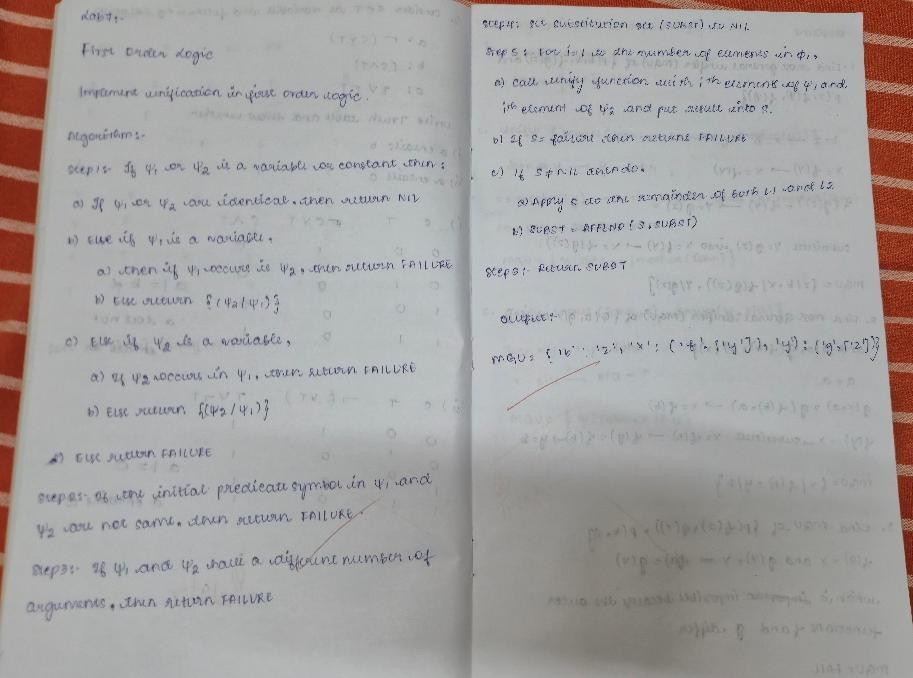 Lab 7:-
First Order Logic
Implement unification in first order logic.
Algorithm:-
Step1:- If Ψ1 or Ψ2 is a variable or constant then:
a) If Ψ1 or Ψ2 are identical, then return NIL
b) Else if Ψ1 is a variable,
a) then if Ψ1 occurs is Ψ2, then return FAILURE
b) Else return {(Ψ2/Ψ1)}
c) Else if Ψ2 is a variable,
a) If Ψ2 occurs in Ψ1, then return FAILURE
b) Else return {(Ψ2/Ψ1)}
d) Else return FAILURE
Step2:- If the initial predicate symbol in Ψ1 and
Ψ2 are not same, then return FAILURE.
Step3:- If Ψ1 and Ψ2 have a different number of
arguments, then return FAILURE
Step4:- Set Substitution set (SUBST) to NIL
Step 5:- For i=1 to the number of elements in Ψ1,
a) call unify function with ith element of Ψ1 and
ith element of Ψ2 and put result into S.
b) If S= failure then returns FAILURE
c) If S≠NIL then do,
a) Apply S to the remainder of both L1 and L2
b) SUBST = APPEND(S, SUBST)
Step6:- Return SUBST
Output:-
MGU = { 'b' : 'z', 'x' : ('f', ['y']), 'y') : ('g', ['z'])}